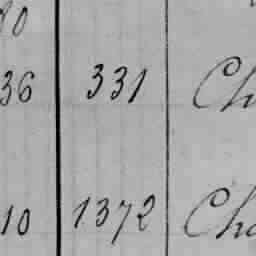 80
36 331 Ch
10 1372 Cha